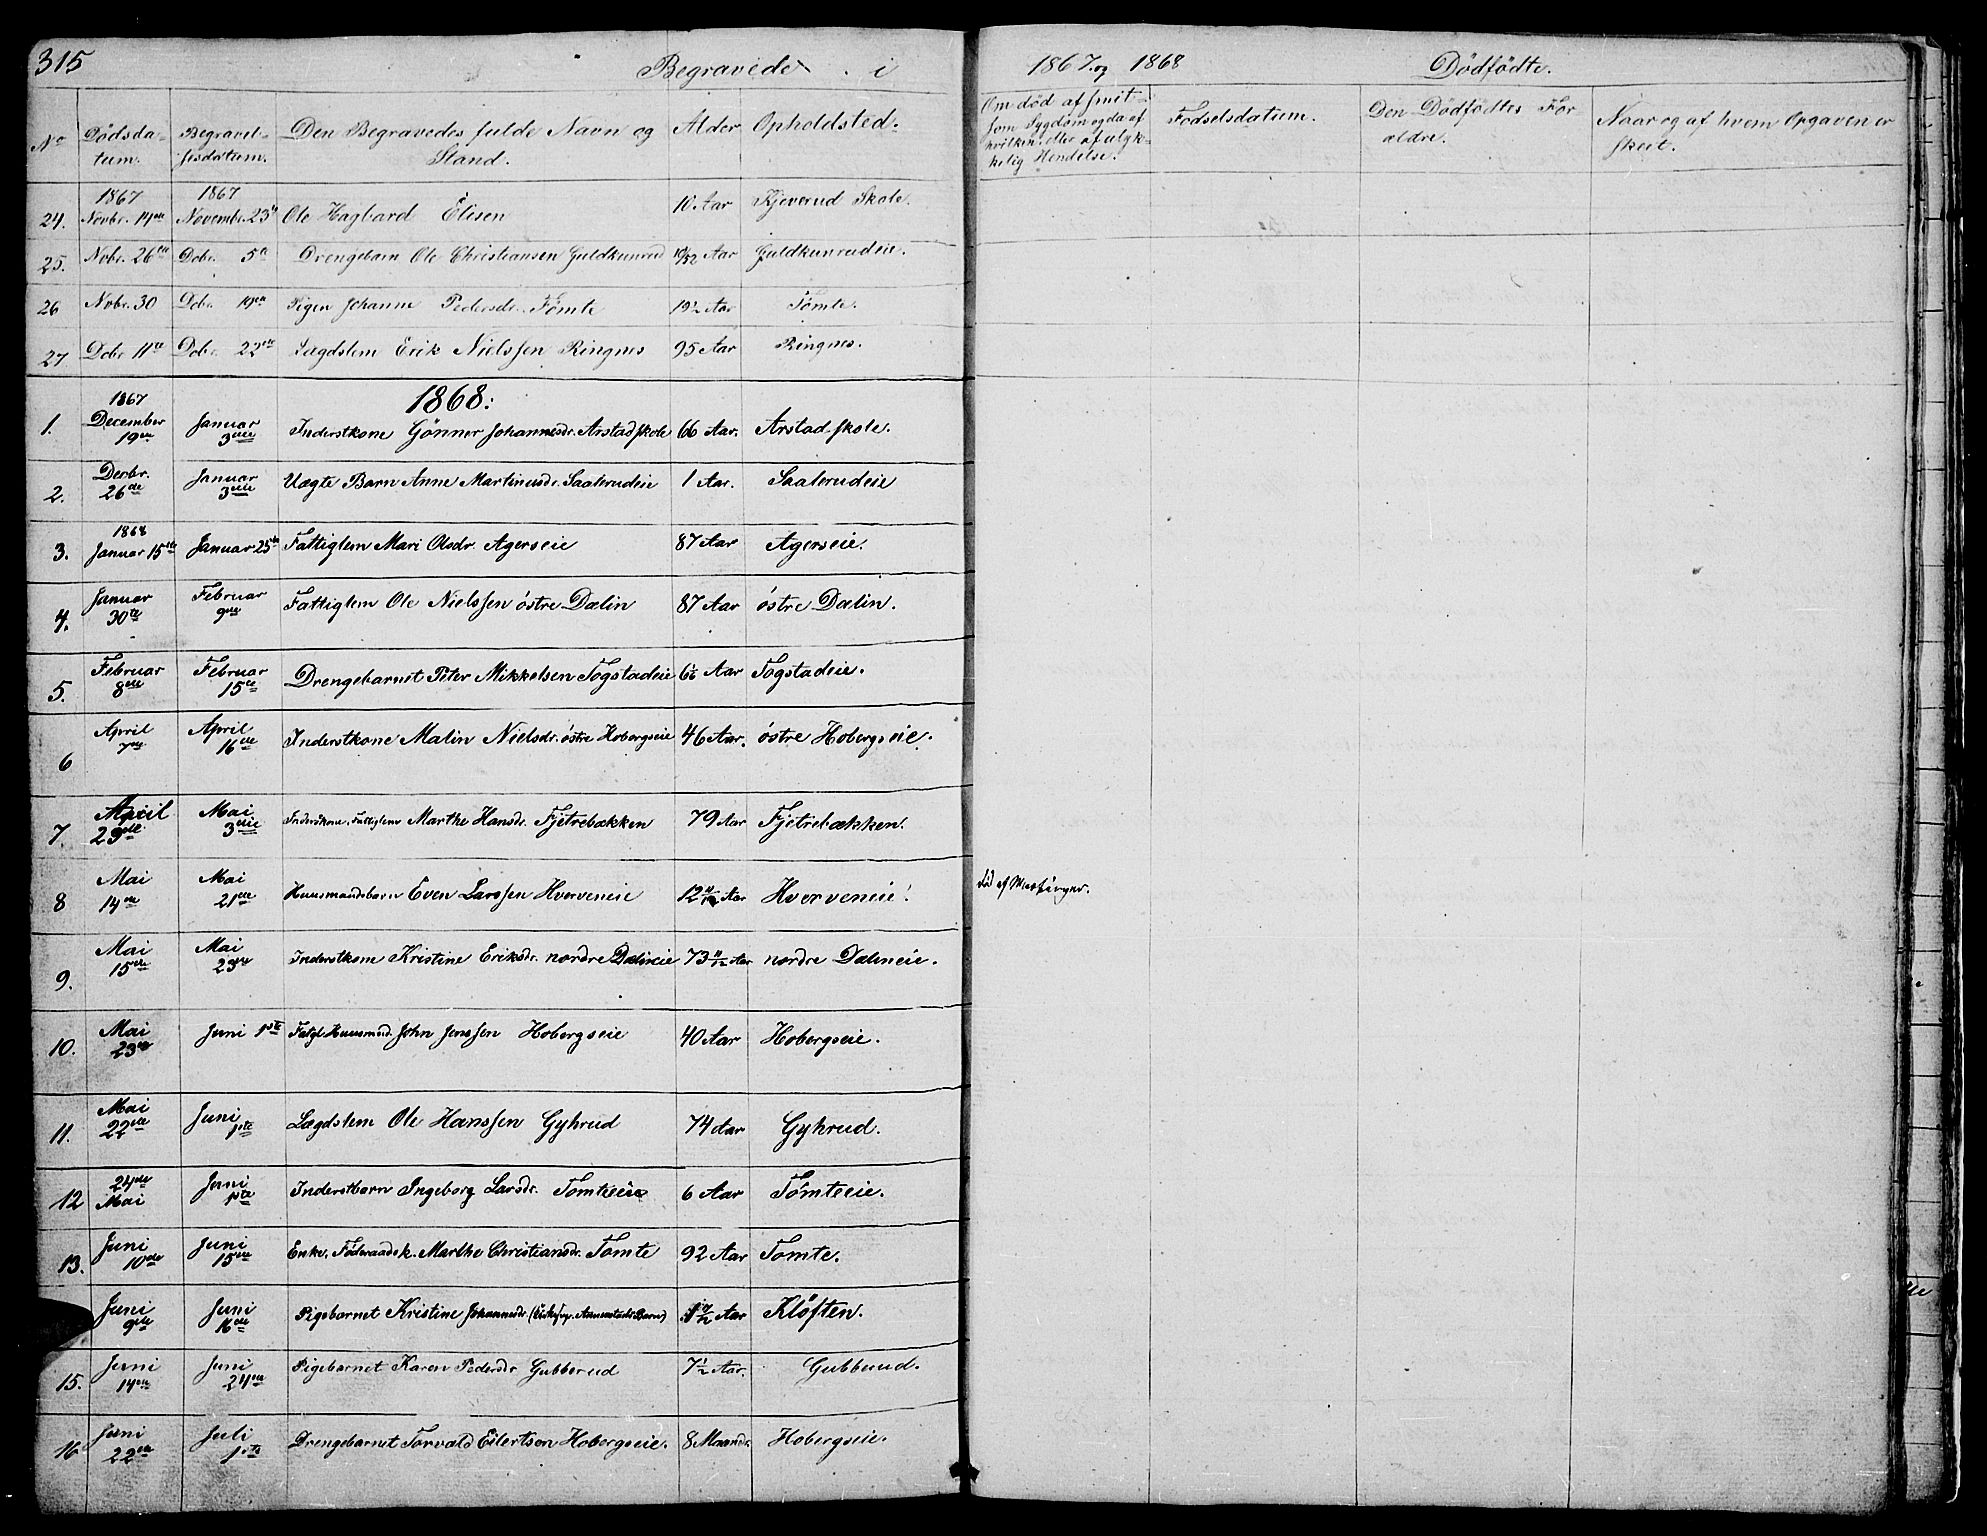 315
Begravede i 1867 og 1868 Dödfödte.
No Dödsda-tum. Begravel-sesdatum. Den Begravedes fulde Navn og Stand. Alder Opholdsted. Om død af smit-som Sygdom og da af hvilken, eller af ulyk-kelig Hendelse. Fødselsdatum. Den Dödfödtes For ældre. Naar og af hvem Opgaven er skeet.
24. 1867 Novbr. 14de 1867 Novembr. 23de Ole Hagbard Elisen 10 Aar Kjeverud Skole.
25. Nobr. 26de Dcbr. 5te Drengebarn Ole Christiansen Guldkunrud 10/52 Aar Guldkunrudeie.
26 Nobr. 30 Dcbr. 19de Pigen Johanne Pedersdr. Tömte 19½ Aar Tömte.
27 Dcbr 11te Dcbr. 22de Lægdslem Erik Nielssen Ringnes 95 Aar Ringnes.
1868:
1. 1867 December 19de Januar 3die Inderstkone Gönner Johannesdr. Arstadskole 66 Aar. Arstadskole.
2. Decbr. 26de Januar 3die Uægte Barn Anne Martinusdr. Saalerudeie 1 Aar. Saalerudeie
3. 1868 Januar 15de Januar 25de Fattiglem Mari Olsdr. Agerseie 87 Aar Agerseie.
4. Januar 30te Februar 9de Fattiglem Ole Nielssen östre Dælin 87 Aar östre Dælin.
5. Februar 8de Februar 15de Drengebarnet Peter Mikkelsen Togstadeie 6½ Aar Togstadeie.
6 April 7de April 16de Inderstkone Malin Nielsdr. östre Hobergseie 46 Aar. östre Hobergseie.
7. April 29de Mai 3die Inderstkone, Fattiglem Marthe Hansdr. Fjetrebækken 79 Aar Fjetrebækken.
8 Mai 14de Mai 21de Huusmandsbarn Even Larssen Hverveneie 12 11/12 Aar Hverveneie! død af Mæslinger.
9. Mai 15de Mai 23de Inderstkone Kristine Eriksdr. nordre Dælineie 73 11/12 Aar nordre Dælineie.
10. Mai 23de Juni 1ste Fatgl Huusmd. John Jenssen Hobergseie 40 Aar Hobergseie.
11. Mai 22de Juni 1ste Lægdslem Ole Hanssen Gyhrud 74 Aar Gyhrud.
12 24de Mai Juni 1ste Inderstbarn Ingeborg Larsdr. Tomteeie 6 Aar Tömteeie.
13. Juni 10de Juni 15de Enke, Föderaadsk. Marthe Christiansdr. Tomte 92 Aar Tomte.
Juni 9de Juni 16de Pigebarnet Kristine Johannesdr Aar Klöften.
15. Juni 14de Juni 24de Pigebarnet Karen Pedersdr Gubberud 7½ Aar. Gubberud.
16 Juni 22de Juli 1ste Drengebarnet Torvald Eilertsen Hobergseie. 8 Maandr. Hobergseie.